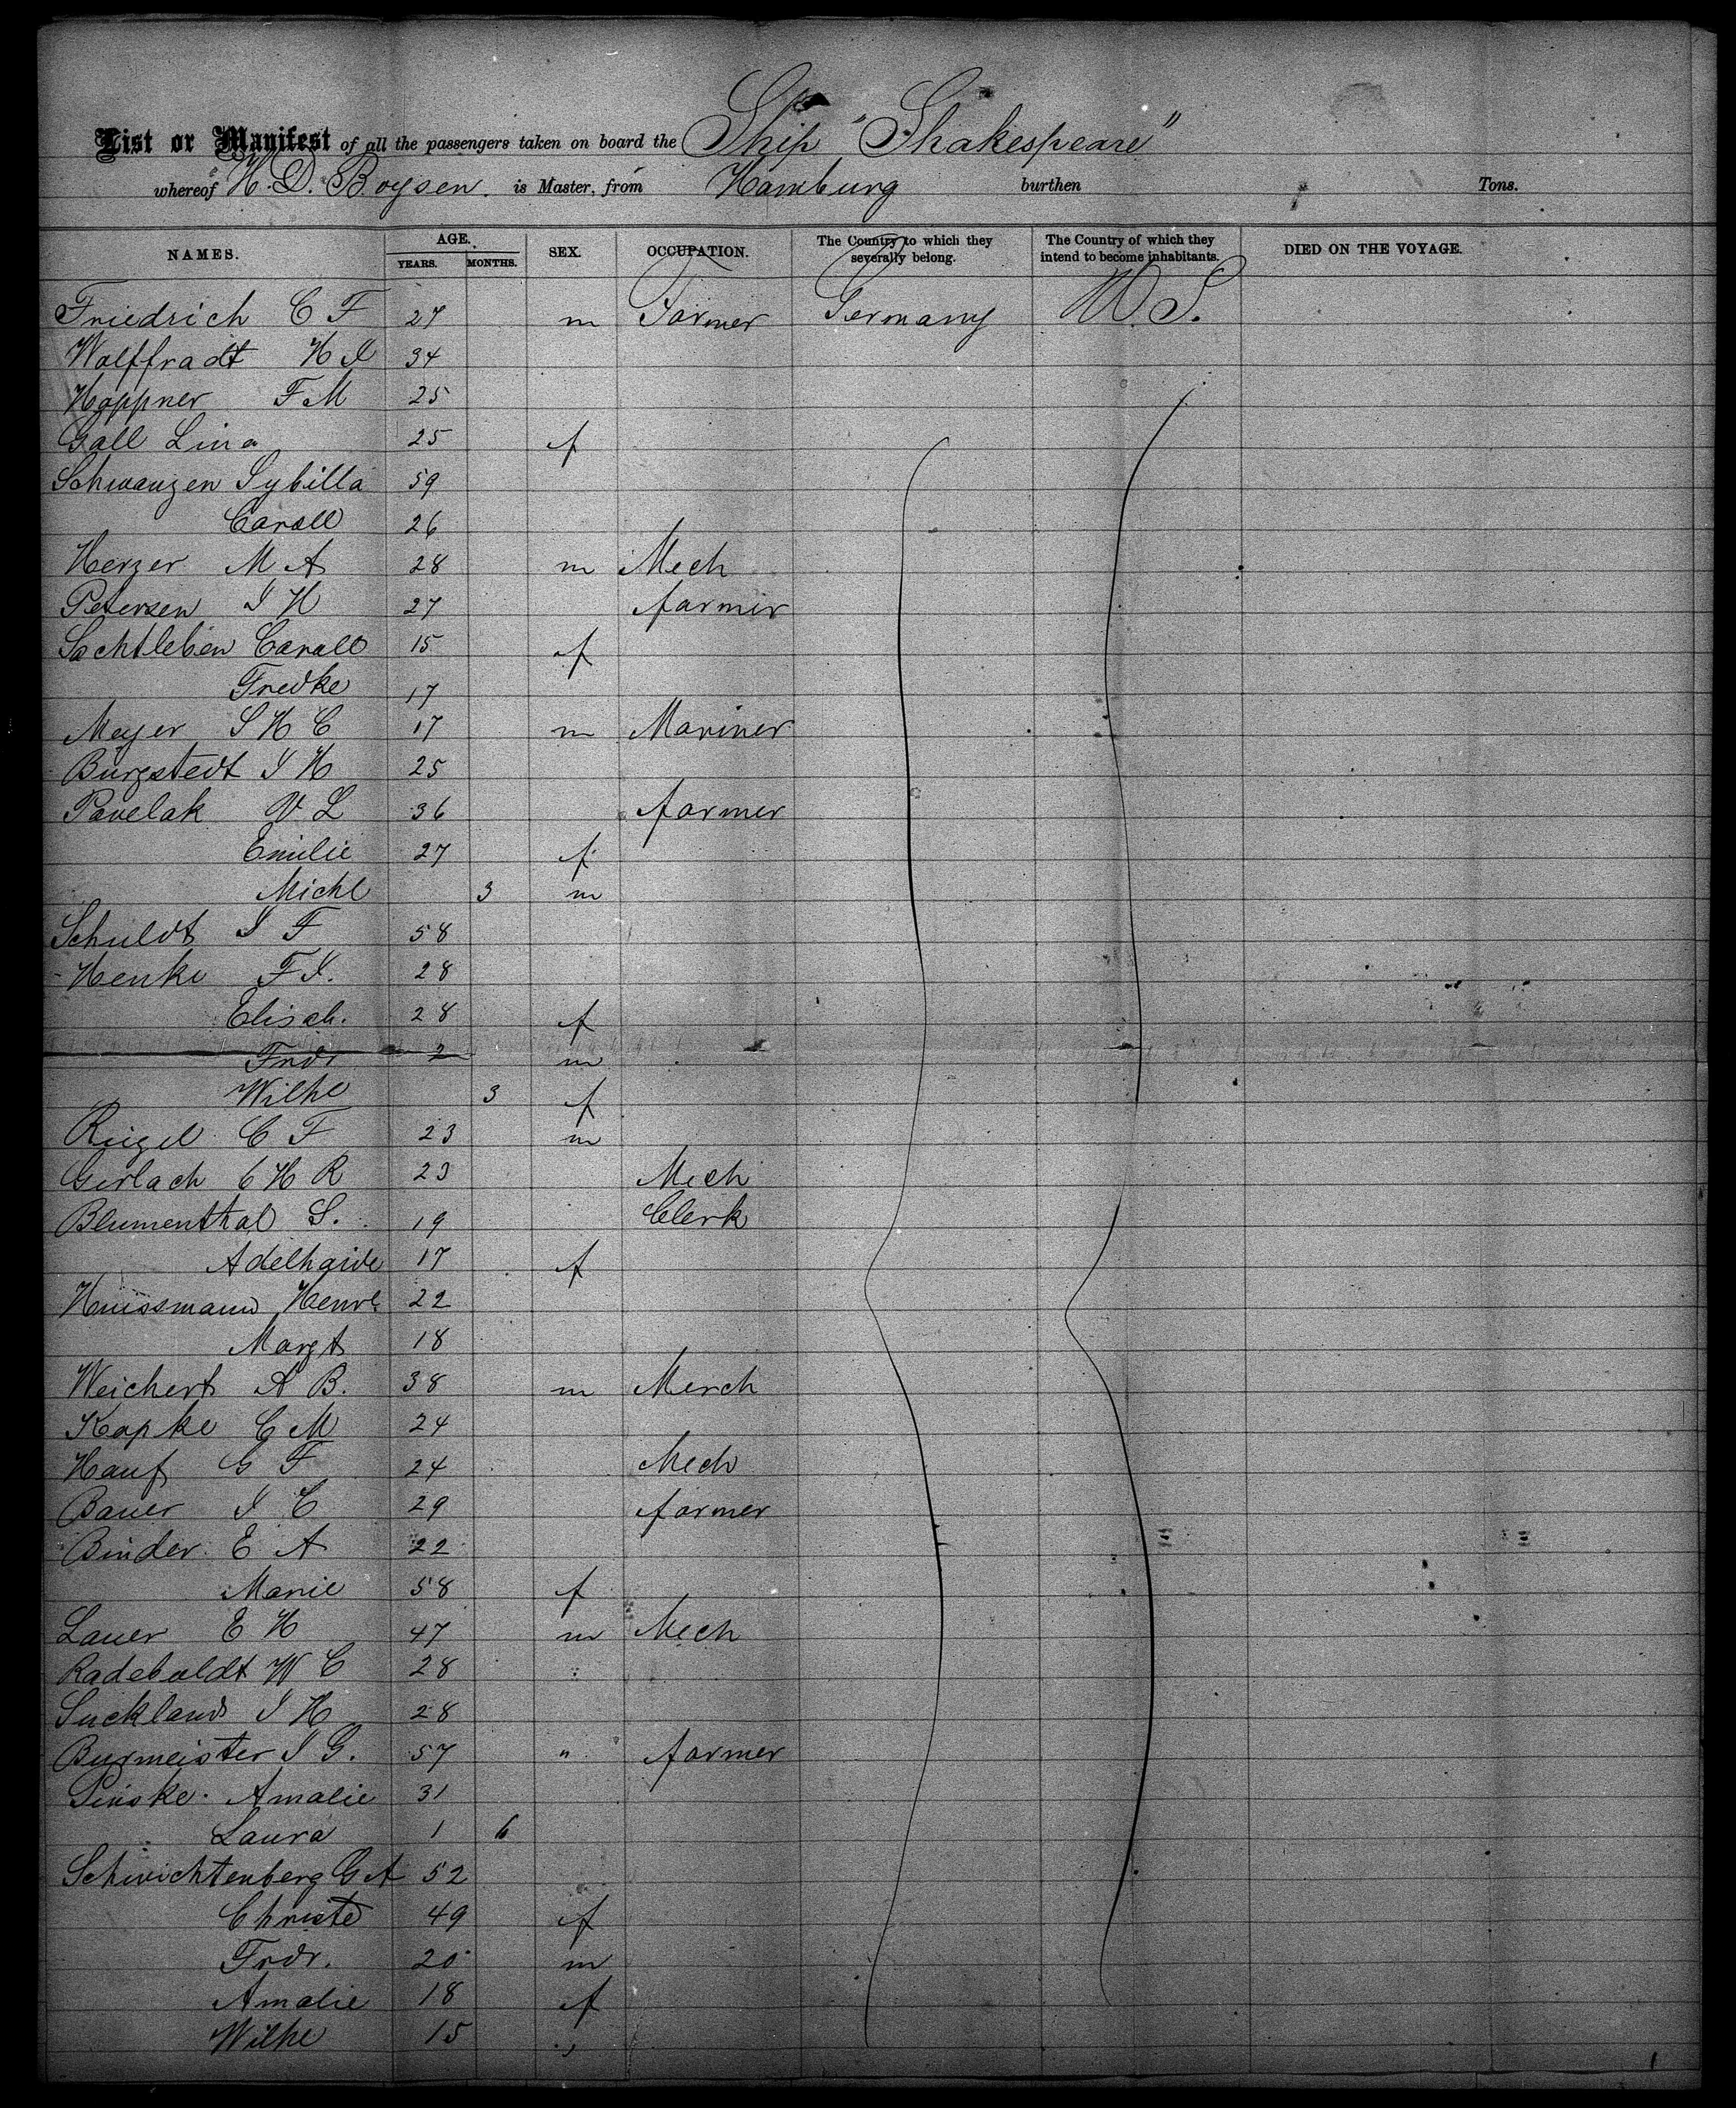 List or Manifest of all the passengers taken on board the Ship "Shakespeare"
whereof H. D. Boysen. is Master, from Hamburg burthen Tons.
NAMES. AGE. YEARS. MONTHS. SEX. OCCUPATION. The Country to which they severally belong. The Country of which they intend to become inhabitants. DIED ON THE VOYAGE.
Friedrich C F 27 m Farmer Germany U. S.
Wolffradt H 34
Hoppner F M 25
Gall Lina 25 f
Schwanzen Sybilla 59
Caroll 26
Herzer M A 28 m Mech
Petersen I H 27 farmer
Sachtleben Caroll 15 f
Fredke 17
Meyer I H C 17 m Mariner
Burgstedt I H 25
Pavelak V L 36 farmer
Emilie 27 f
Michl 3 m
Schuldt I F 58
Henke F I. 28
Elisab. 28 f
Frdr 2 m
Wilhe 3 f
Riegel C F 23 m
Gerlach C H R 23 Mech
Blumenthal S. 19 Clerk
Adelhaide 17 f
Henre 22
Margt 18
Weichert A B. 38 m Merch
Kopke C M 24
Hauf G F 24 Mech
Bauer I C 29 farmer
Binder E A 22
Marie 58 f
Lauer E H 47 m Mech
Radeboldt W C 28
I H 28
Burmeister I G. 57 " farmer
Amalie 31
Laura 1 6
Schwichtenberg G A 52
Christe 49 f
Frdr. 20 m
Amalie 18 f
Wilhe 15 "